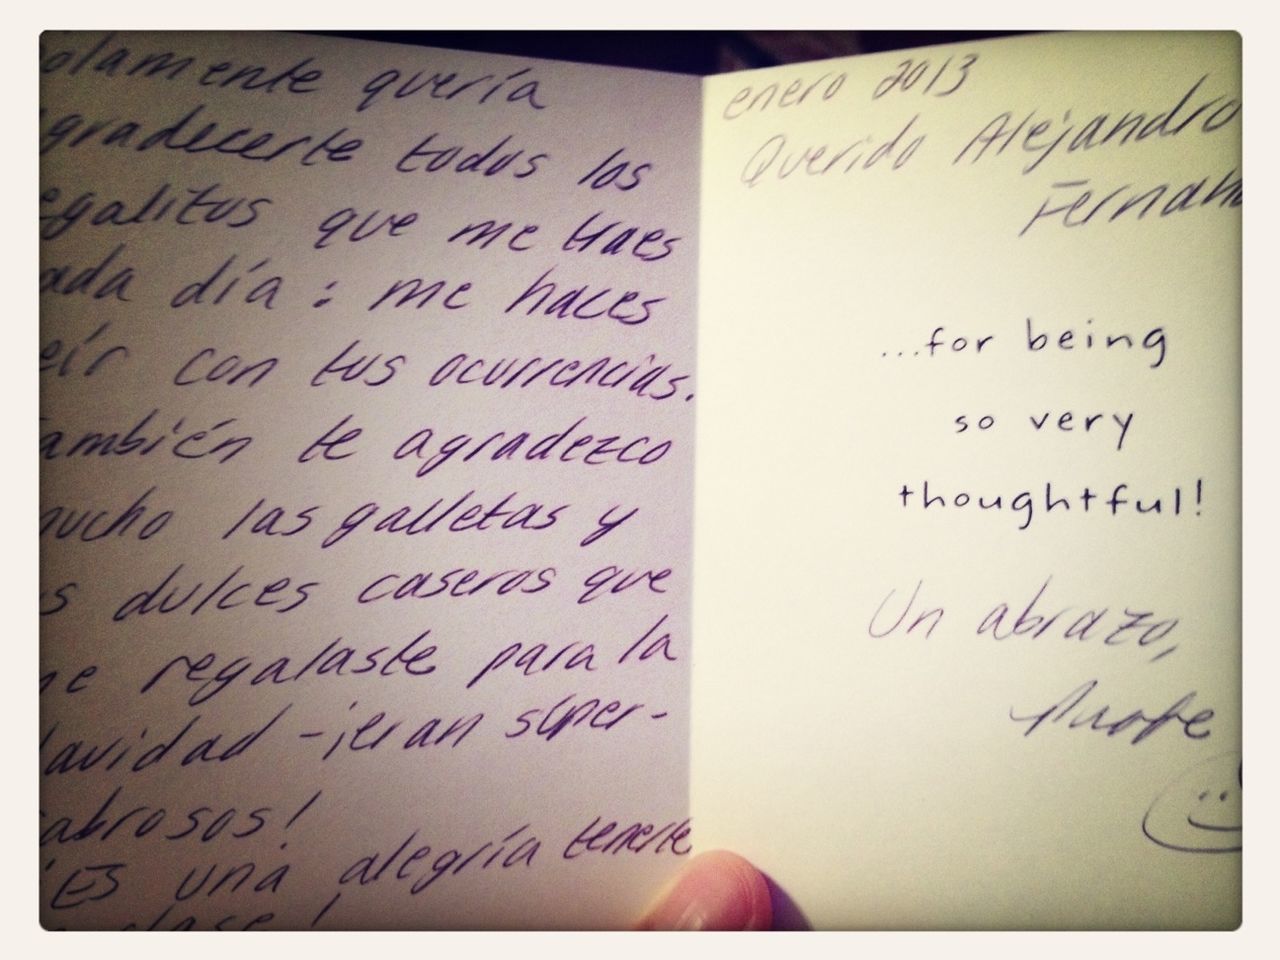 olamente quería
gradecerte todos los
egalitos que me traes
ada día: me haces
eír con tus ocurrencias.
ambién te agradezco
mucho las galletas y
s dulces caseros que
me regalaste para la
avidad -¡eran súper-
abrosos!
¡Es una alegría tenerte
clase!
enero 2013
Querido Alejandro
Fernan
...for being
so very
thoughtful!
Un abrazo,
Profe